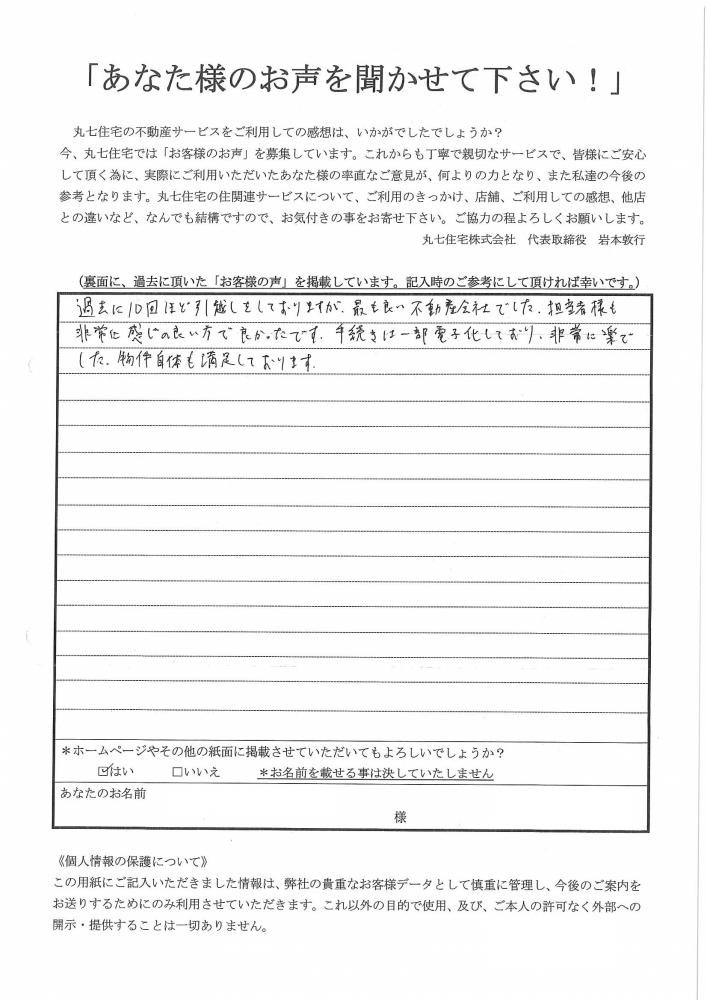 「あなた様のお声を聞かせて下さい！」
丸七住宅の不動産サービスをご利用しての感想は、いかがでしたでしょうか？
今、丸七住宅では「お客様のお声」を募集しています。これからも丁寧で親切なサービスで、皆様にご安心
して頂く為に、実際にご利用いただいたあなた様の率直なご意見が、何よりの力となり、また私達の今後の
参考となります。丸七住宅の住関連サービスについて、ご利用のきっかけ、店舗、ご利用しての感想、他店
との違いなど、なんでも結構ですので、お気付きの事をお寄せ下さい。ご協力の程よろしくお願いします。
丸七住宅株式会社　代表取締役　岩本敦行
（裏面に、過去に頂いた「お客様の声」を掲載しています。記入時のご参考にして頂ければ幸いです。）
過去に10回ほど引越しをしておりますが、最も良い不動産会社でした。担当者様も
非常に感じの良い方で良かったです。手続きは一部電子化しており、非常に楽で
した。物件自体も満足しております。
＊ホームページやその他の紙面に掲載させていただいてもよろしいでしょうか？
☑はい　□いいえ　＊お名前を載せる事は決していたしません
あなたのお名前
様
《個人情報の保護について》
この用紙にご記入いただきました情報は、弊社の貴重なお客様データとして慎重に管理し、今後のご案内を
お送りするためにのみ利用させていただきます。これ以外の目的で使用、及び、ご本人の許可なく外部への
開示・提供することは一切ありません。